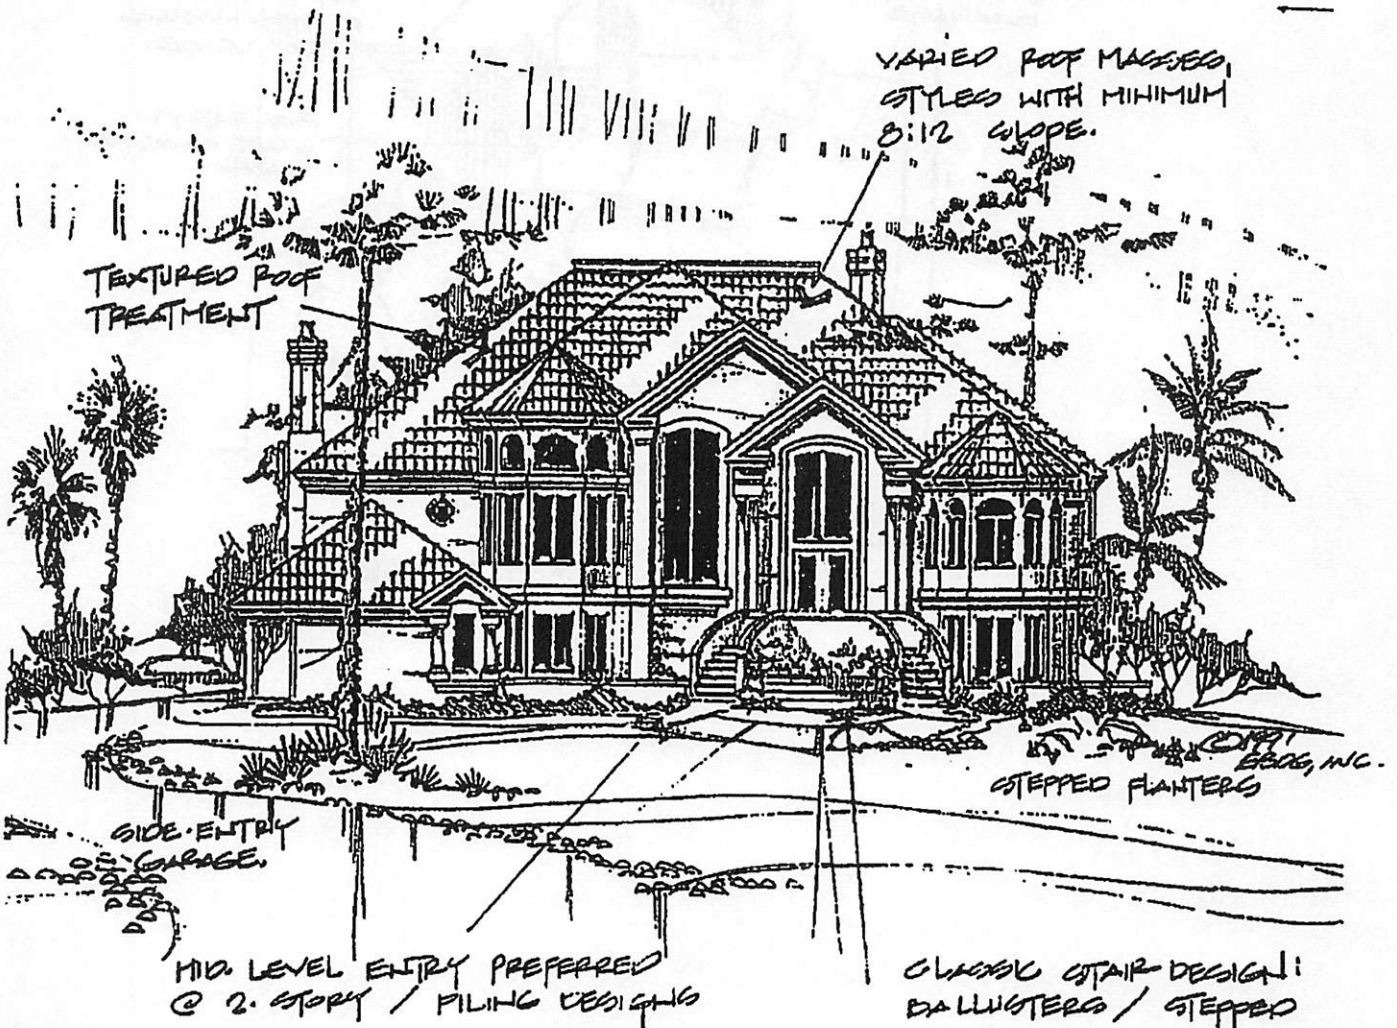 VARIED ROOF MASSES,
STYLES WITH MINIMUM
8:12 SLOPE.
TEXTURED ROOF
TREATMENT
©1991
EBDG, INC.
STEPPED PLANTERS
SIDE-ENTRY
GARAGE.
MID. LEVEL ENTRY PREFERRED
@ 2. STORY / PILING DESIGNS
CLASSIC STAIR DESIGN:
BALLUSTERS / STEPPED